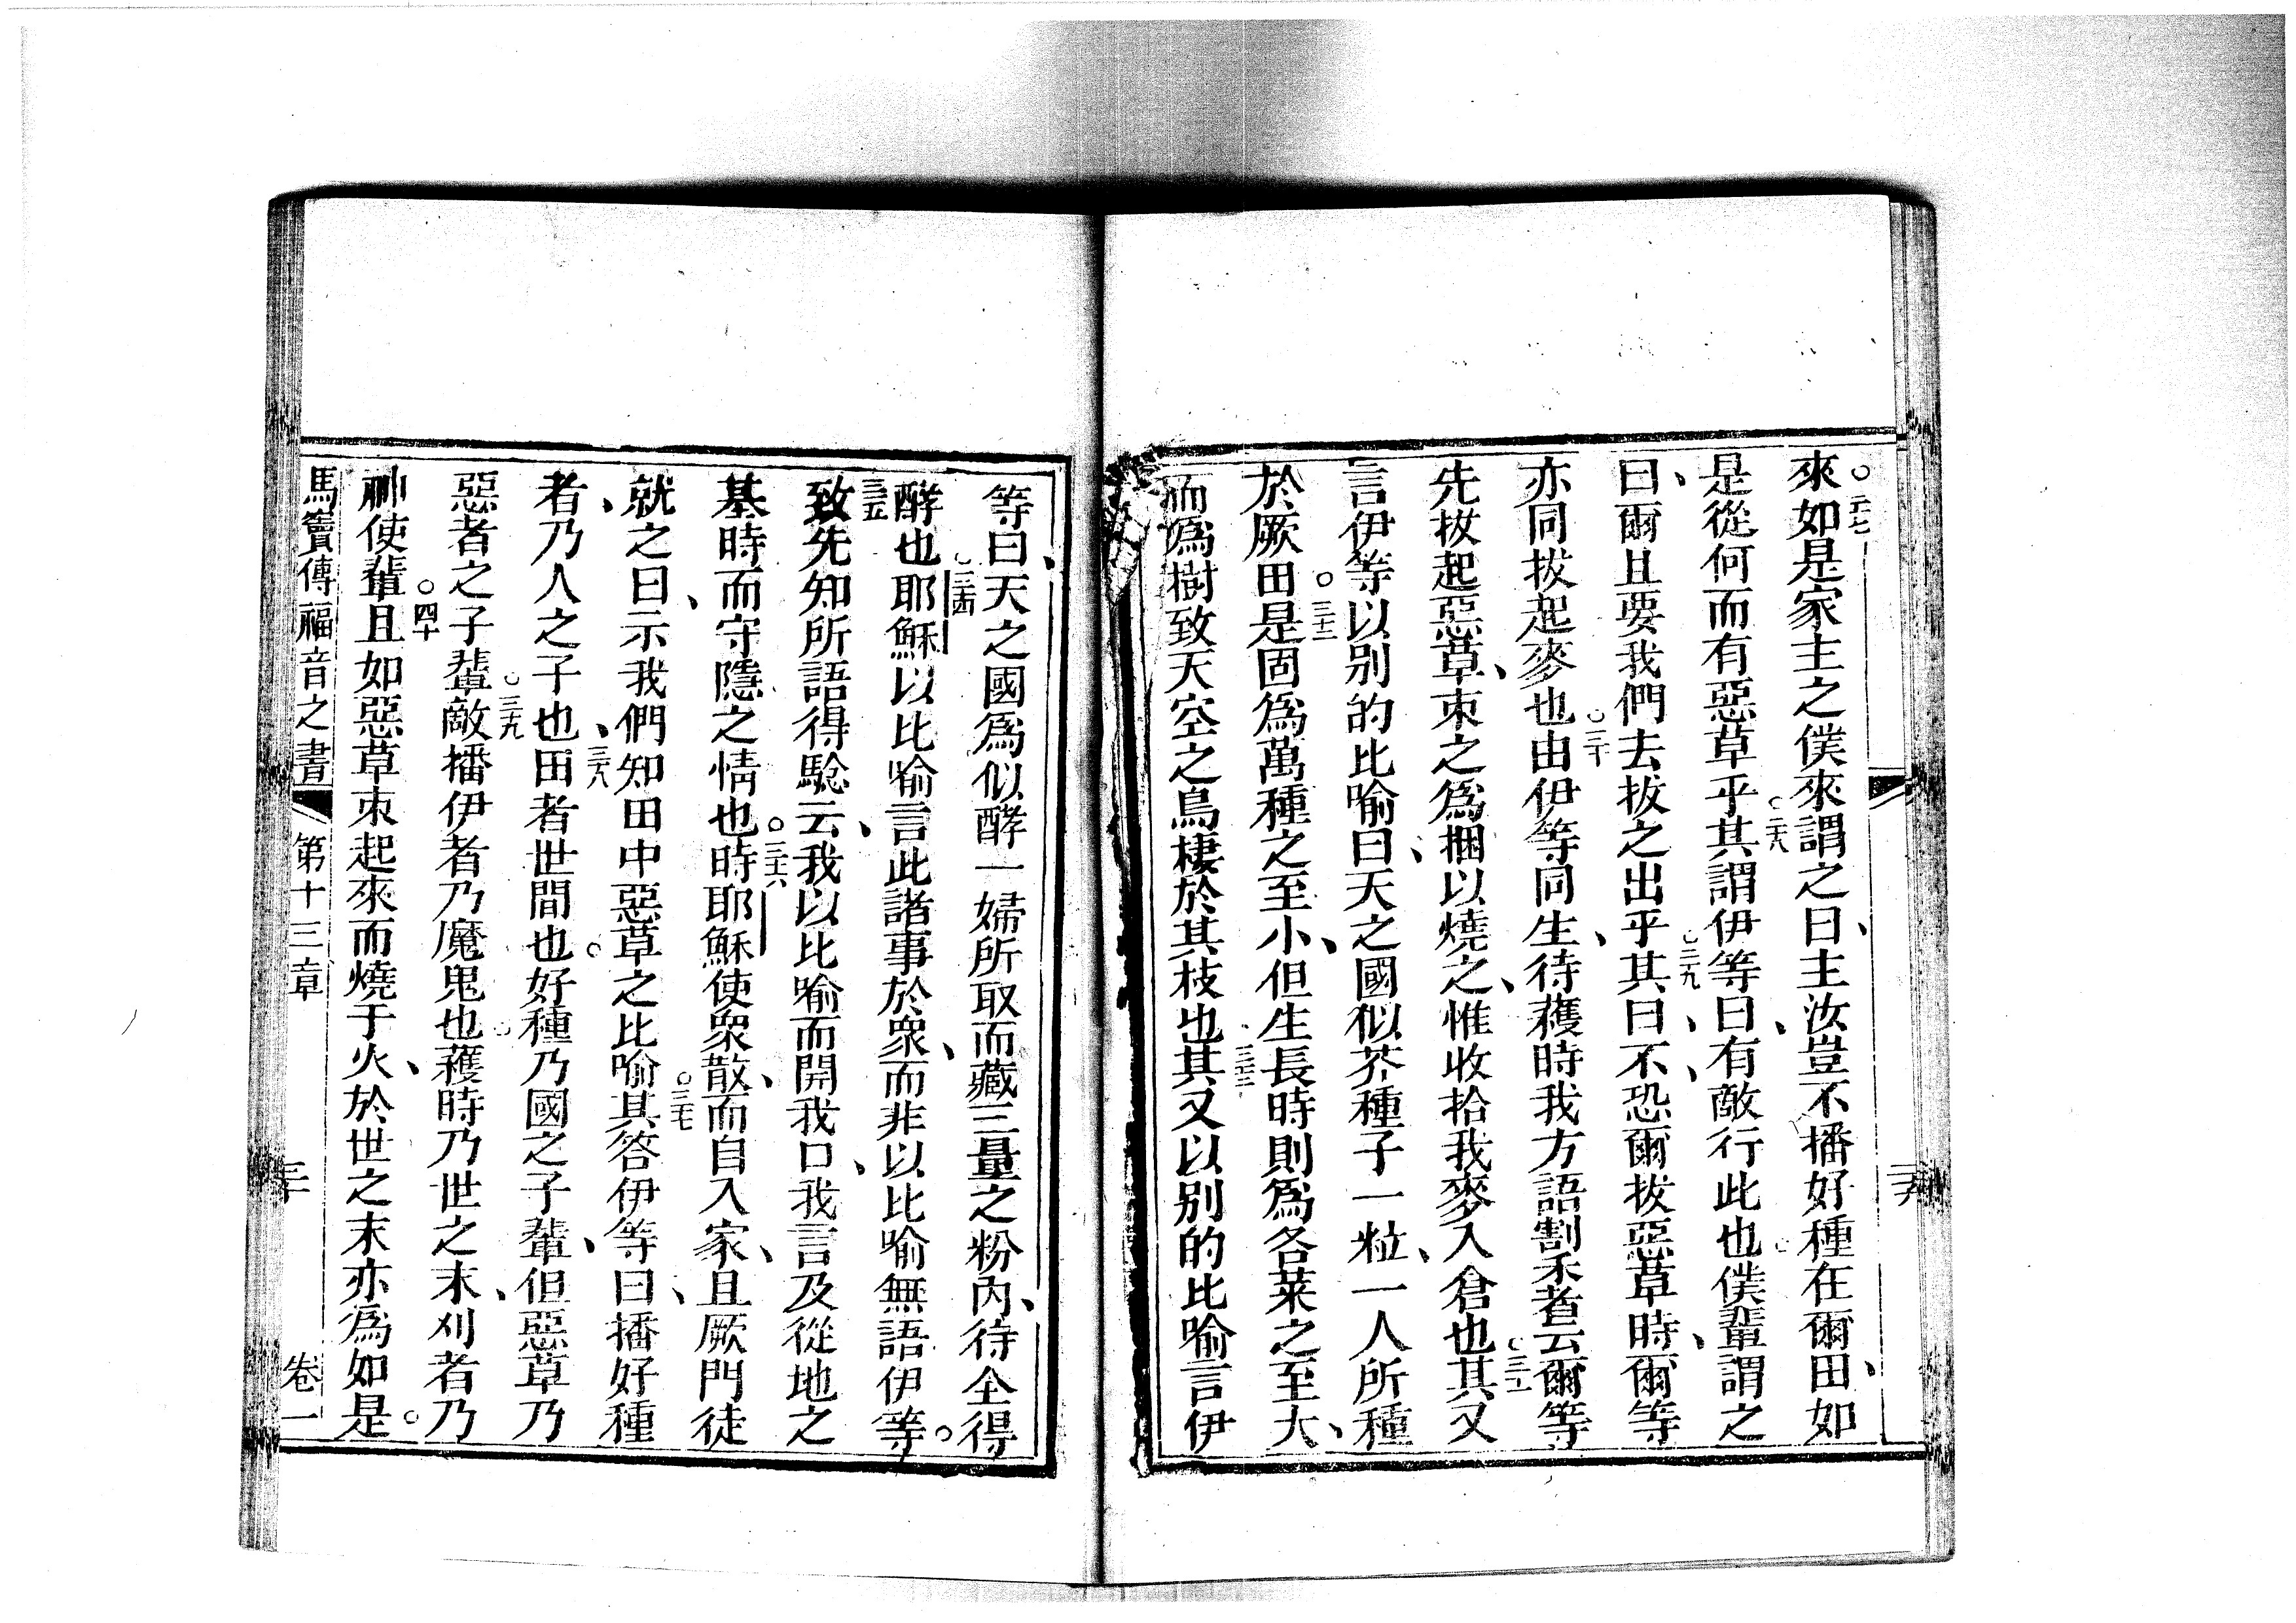 來如是家主之僕來謂之曰、主汝豈不播好種在爾田、如
○二七
是從何而有惡草乎其謂伊等曰、有敵行此也○僕輩謂之
○二八
曰、爾且要我們去拔之出乎其曰、不、恐爾拔惡草時、爾等
○二九
亦同拔起麥也由伊等同生、待穫時我方語割禾者云爾等
○三十
先拔起惡草、束之為捆以燒之、惟收拾我麥入倉也其又
○三一
言伊等以別的比喻曰、天之國似芥種子一粒、一人所種
於厥田是固為萬種之至小、但生長時則為各菜之至大、
○三二
而為樹致天空之鳥棲於其枝也其又以別的比喻言伊
三三
等曰、天之國為似酵一婦所取而藏三量之粉內、待全得
酵也耶穌以比喻言此諸事於衆、而非以比喻無語伊等。
○三四
致先知所語得驗云、我以比喻而開我口、我言及從地之
三五
基時而守隱之情也○時耶穌使衆散、而自入家、且厥門徒
三六
就之曰、示我們知田中惡草之比喻其答伊等曰、播好種
○三七
者、乃人之子也、田者世間也○好種乃國之子輩、但惡草乃
三八
惡者之子輩敵播伊者乃魔鬼也○穫時乃世之末、刈者乃
○三九
神使輩且如惡草束起來而燒于火、於世之末亦為如是○
○四十
馬竇傳福音之書 第十三章 三十 卷一